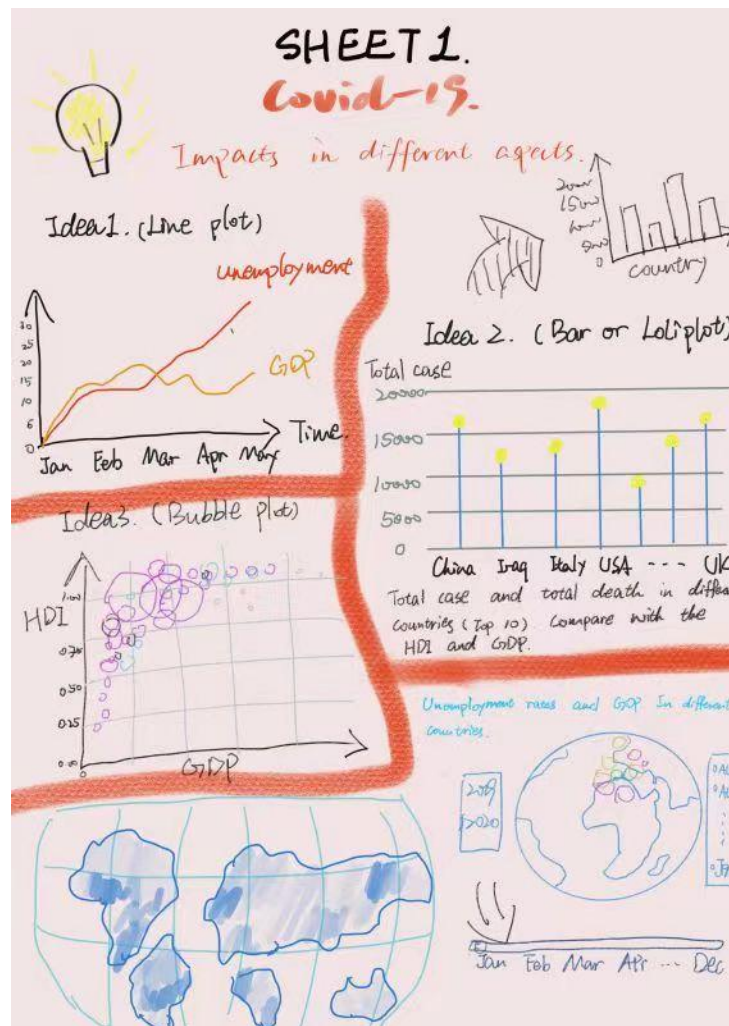 SHEET 1.
Covid-19.
Impacts in different aspects.
Idea1. (Line plot)
unemployment
GDP
30
25
20
15
10
6
0
Time.
Jan Feb Mar Apr May
15000
0
country
Idea 2. (Bar or Loliplot)
Total case
20000
15000
10000
5000
0
China Iraq Italy USA ---- UK
Total case and total death in differe
countries (Top 10) Compare with the
HDI and GDP.
Idea3. (Bubble plot)
HDI
1.00
0.75
0.50
0.25
0.00
0
GDP
Unemployment rates and GDP In different
countries.
2019
2020
Jan Feb Mar Apr ... Dec